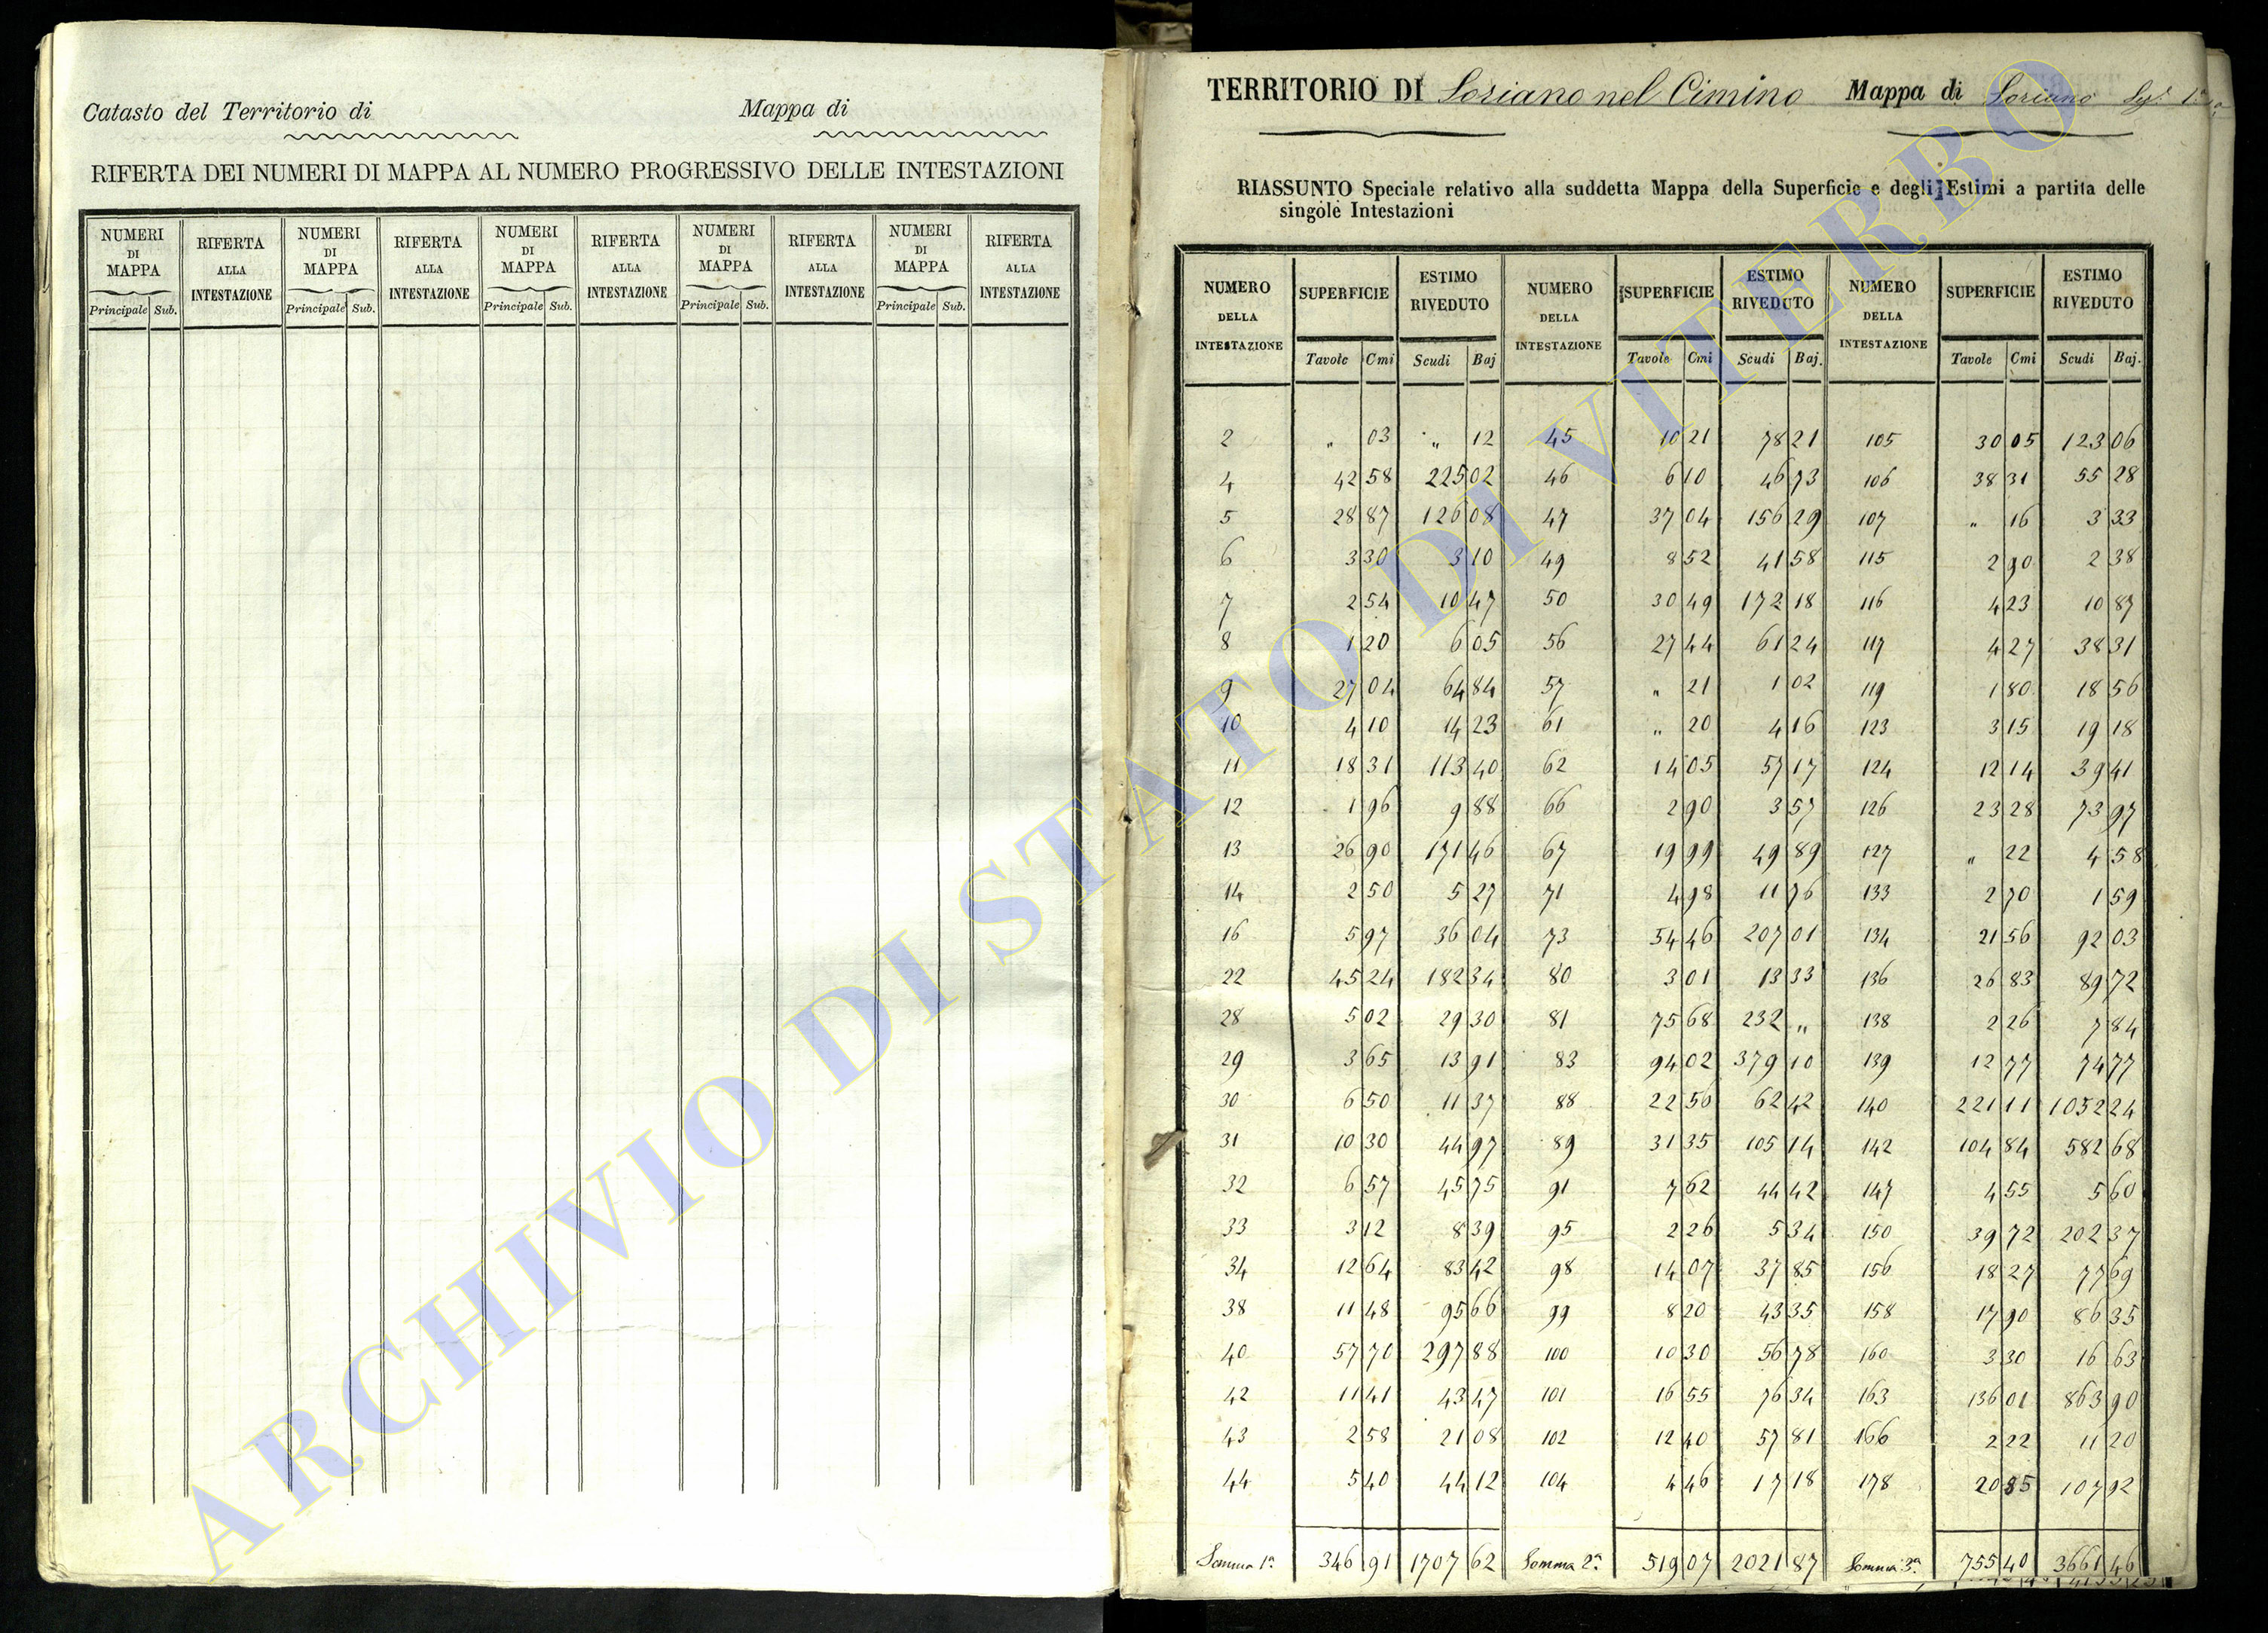 Catasto del Territorio di
Mappa di
RIFERTA DEI NUMERI DI MAPPA AL NUMERO PROGRESSIVO DELLE INTESTAZIONI
NUMERI DI MAPPA RIFERTA ALLA INTESTAZIONE NUMERI DI MAPPA RIFERTA ALLA INTESTAZIONE NUMERI DI MAPPA RIFERTA ALLA INTESTAZIONE NUMERI DI MAPPA RIFERTA ALLA INTESTAZIONE NUMERI DI MAPPA RIFERTA ALLA INTESTAZIONE
Principale Sub. Principale Sub. Principale Sub. Principale Sub. Principale Sub.
TERRITORIO DI Soriano nel Cimino Mappa di Soriano
RIASSUNTO Speciale relativo alla suddetta Mappa della Superficie e degli Estimi a partita delle
singole Intestazioni
NUMERO DELLA INTESTAZIONE SUPERFICIE ESTIMO RIVEDUTO NUMERO DELLA INTESTAZIONE SUPERFICIE ESTIMO RIVEDUTO NUMERO DELLA INTESTAZIONE SUPERFICIE ESTIMO RIVEDUTO
Tavole Cmi Scudi Baj Tavole Cmi Scudi Baj. Tavole Cmi Scudi Baj.
2 „ 03 „ 12 45 10 21 78 21 105 30 05 123 06
4 42 58 225 02 46 6 10 46 73 106 38 31 55 28
5 28 87 126 08 47 37 04 156 29 107 „ 16 3 33
6 3 30 3 10 49 8 52 41 58 115 2 90 2 38
7 2 54 10 47 50 30 49 172 18 116 4 23 10 87
8 1 20 6 05 56 27 44 61 24 117 4 27 38 31
9 27 04 64 84 57 „ 21 1 02 119 1 80 18 56
10 4 10 14 23 61 „ 20 4 16 123 3 15 19 18
11 18 31 113 40 62 14 05 57 17 124 12 14 39 41
12 1 96 9 88 66 2 90 3 57 126 23 28 73 97
13 26 90 171 46 67 19 99 49 89 127 „ 22 4 58
14 2 50 5 27 71 4 98 11 76 133 2 70 1 59
16 5 97 36 04 73 54 46 207 01 134 21 56 92 03
22 45 24 182 34 80 3 01 13 33 136 26 83 89 72
28 5 02 29 30 81 75 68 232 „ 138 2 26 7 84
29 3 65 13 91 83 94 02 379 10 139 12 77 74 77
30 6 50 11 37 88 22 56 62 42 140 221 11 1052 24
31 10 30 44 97 89 31 35 105 14 142 104 84 582 68
32 6 57 45 75 91 7 62 44 42 147 4 55 5 60
33 3 12 8 39 95 2 26 5 34 150 39 72 202 37
34 12 64 83 42 98 14 07 37 85 156 18 27 77 69
38 11 48 95 66 99 8 20 43 35 158 17 90 86 35
40 57 70 297 88 100 10 30 56 78 160 3 30 16 63
42 11 41 43 47 101 16 55 76 34 163 136 01 863 90
43 2 58 21 08 102 12 40 57 81 166 2 22 11 20
44 5 40 44 12 104 4 46 17 18 178 20 85 107 92
Somma 1ª 346 91 1707 62 Somma 2ª 519 07 2021 87 Somma 3ª 755 40 3661 46
ARCHIVIO DI STATO DI VITERBO